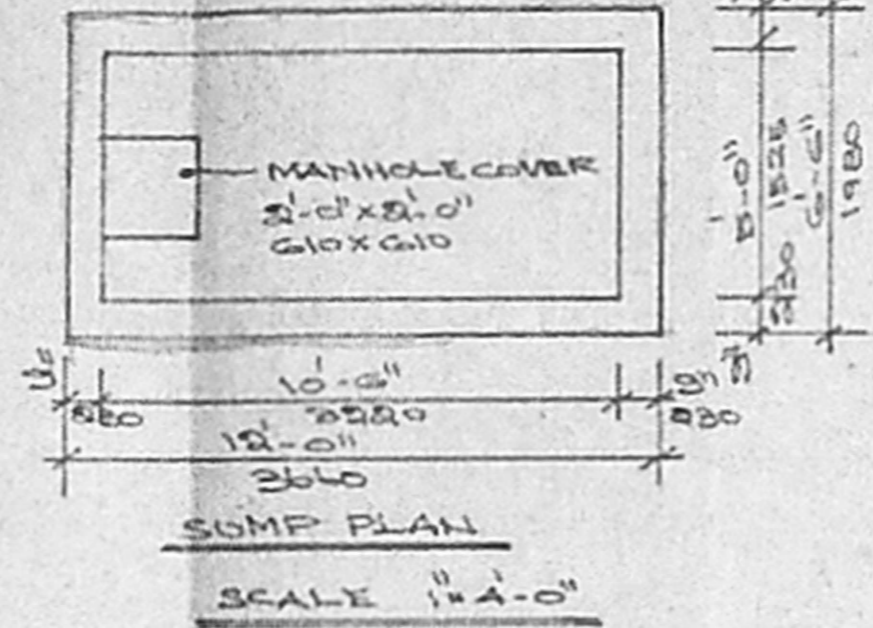 MANHOLE COVER
2'-0" x 2'-0"
610 x 610
5'-0"
1525
6'-6"
1980
230
9"
10'-6"
9"
230
3220
230
12'-0"
3640
SUMP PLAN
SCALE 1"=4'-0"